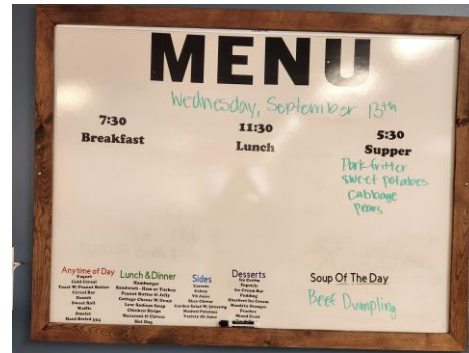 MENU
Wednesday, September 13th
7:30
Breakfast
11:30
Lunch
5:30
Supper
Pork fritter
sweet potatoes
cabbage
pears
Anytime of Day
Yogurt
Cold Cereal
Toast W/ Peanut Butter
Cereal Bar
Danish
Sweet Roll
Waffle
Omelet
Hard Boiled Egg
Lunch & Dinner
Hamburger
Sandwich - Ham or Turkey
Peanut Butter & Jelly
Cottage Cheese W/ Fruit
Low Sodium Soup
Chicken Strips
Macaroni & Cheese
Hot Dog
Sides
Carrots
Celery
V8 Juice
Garden Salad W/ Dressing
Mashed Potatoes
Desserts
Ice Cream
Popsicle
Ice Cream Bar
Pudding
Sherbet Ice Cream
Mandarin Oranges
Peaches
Mixed Fruit
Soup Of The Day
Beef Dumpling